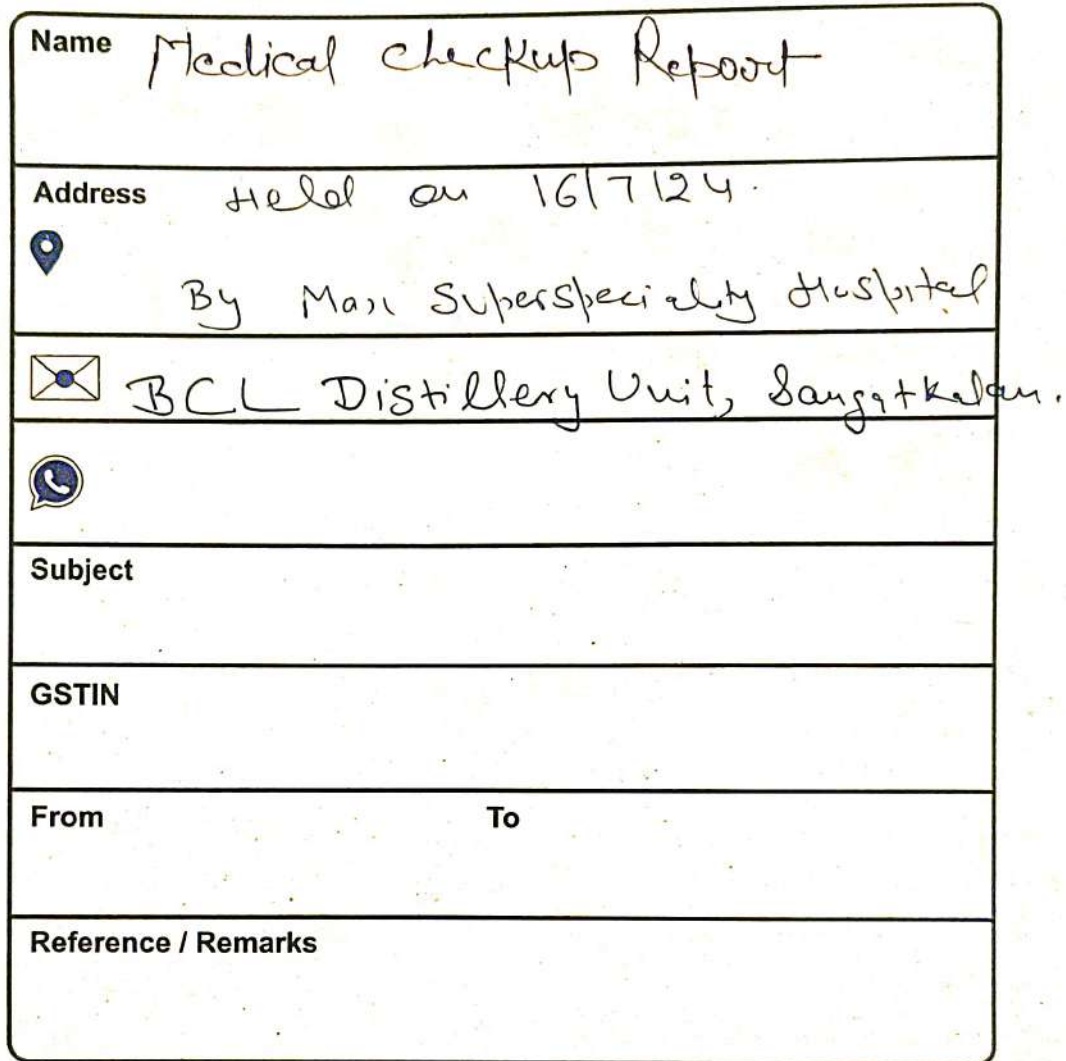 Name Medical checkup Repoort
Address Held on 16/7/24.
By Max Superspeciality Hospital
BCL Distillery Unit, Sangatkalan.
Subject
GSTIN
From To
Reference / Remarks